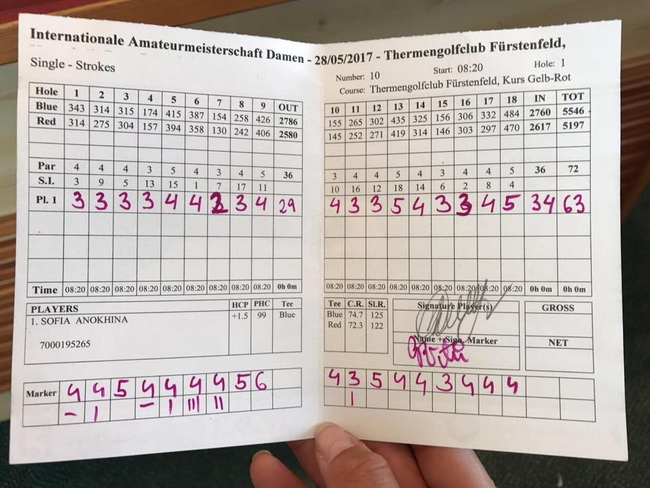 Internationale Amateurmeisterschaft Damen - 28/05/2017 - Thermengolfclub Fürstenfeld,
Single - Strokes
Hole 1 2 3 4 5 6 7 8 9 OUT
Blue 343 314 315 174 415 387 154 258 426 2786
Red 314 275 304 157 394 358 130 242 406 2580
Par 4 4 4 3 5 4 3 4 5 36
S.I. 3 9 5 13 15 1 7 17 11
Pl. 1 3 3 3 3 4 4 2 3 4 29
Time 08:20 08:20 08:20 08:20 08:20 08:20 08:20 08:20 08:20 0h 0m
PLAYERS HCP PHC Tee
1. SOFIA ANOKHINA +1.5 99 Blue
7000195265
Marker 4 4 5 4 4 4 4 5 6
Number: 10 Start: 08:20 Hole: 1
Course: Thermengolfclub Fürstenfeld, Kurs Gelb-Rot
10 11 12 13 14 15 16 17 18 IN TOT
155 265 302 435 325 156 306 332 484 2760 5546
145 252 271 419 314 146 303 297 470 2617 5197
3 4 4 5 4 3 4 4 5 36 72
10 16 12 18 14 6 2 8 4
4 3 3 5 4 3 3 4 5 34 63
08:20 08:20 08:20 08:20 08:20 08:20 08:20 08:20 08:20 0h 0m 0h 0m
Tee C.R. SLR. Signature Player(s) GROSS
Blue 74.7 125
Red 72.3 122
Name + Sign. Marker NET
4 3 5 4 4 3 4 4 4